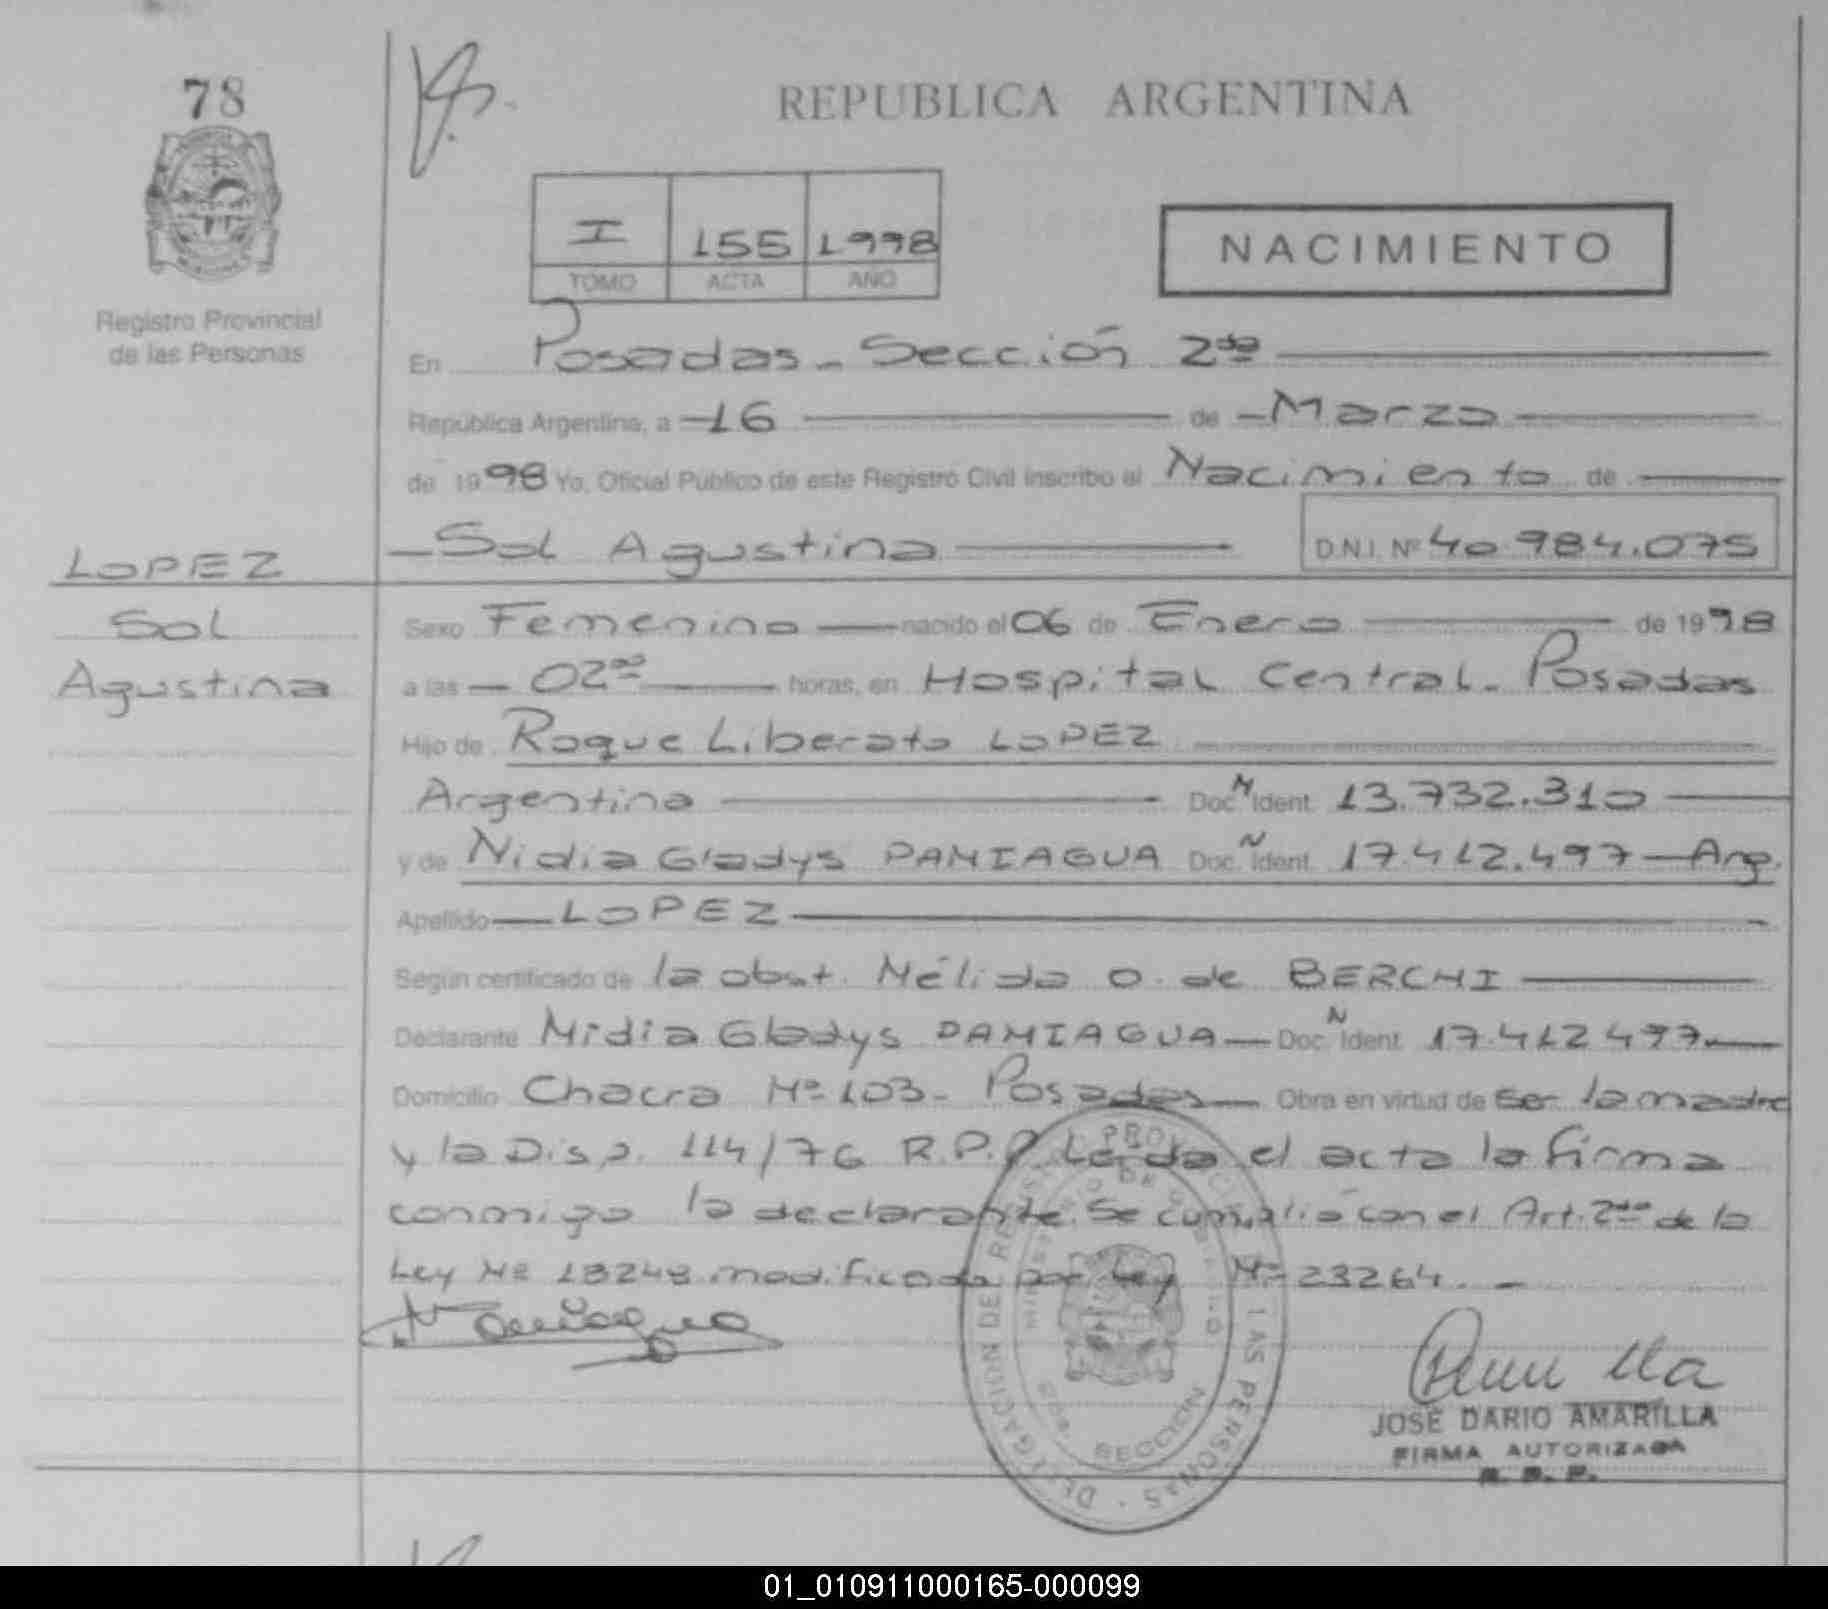 78
REPUBLICA ARGENTINA
I 155 1998
TOMO ACTA AÑO
NACIMIENTO
Registro Provincial
de las Personas
En Posadas - Sección 2da
República Argentina, a 16 de Marzo
de 1998 Yo, Oficial Público de este Registro Civil inscribo el Nacimiento de
LOPEZ
Sol
Agustina
Sol Agustina D.N.I. Nº 40.984.075
Sexo Femenino nacido el 06 de Enero de 1998
a las 0200 horas, en Hospital Central - Posadas
Hijo de Roque Liberato LOPEZ
Argentina Doc. N Ident. 13.732.310
y de Nidia Gladys PANIAGUA Doc. N Ident. 17.412.497 - Arg.
Apellido LOPEZ
Según certificado de la obst. Nélida O. de BERCHI
Declarante Nidia Gladys PANIAGUA Doc. N Ident. 17.412.497
Domicilio Chacra Nº 103 - Posadas Obra en virtud de ser la madre
y la Disp. 114/76 R.P.P. Leída el acta la firma
conmigo la declarante. Se cumplió con el Art. 2do de la
Ley Nº 18248 modificada por Ley Nº 23264. -
N Paniagua
DELEGACION DE REGISTRO PROVINCIAL DE LAS PERSONAS
MINISTERIO DE GOBIERNO
SECCION
JOSE DARIO AMARILLA
FIRMA AUTORIZADA
R. P. P.
01_010911000165-000099